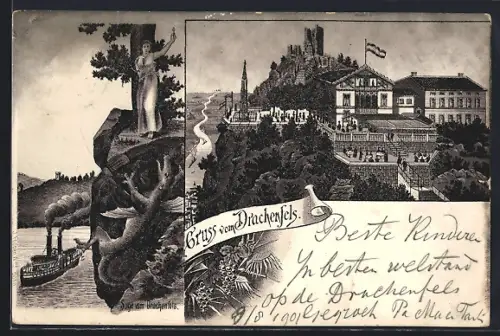 Gruss vom Drachenfels.
Sage vom Drachenfels.
Beste Kinderen
In besten welstand
op de Drachenfels
9/8 1901 Pa Ma en Tante